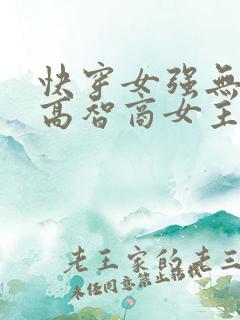 快穿女强無
高智商女主
老王家的老三
未经同意禁止转载